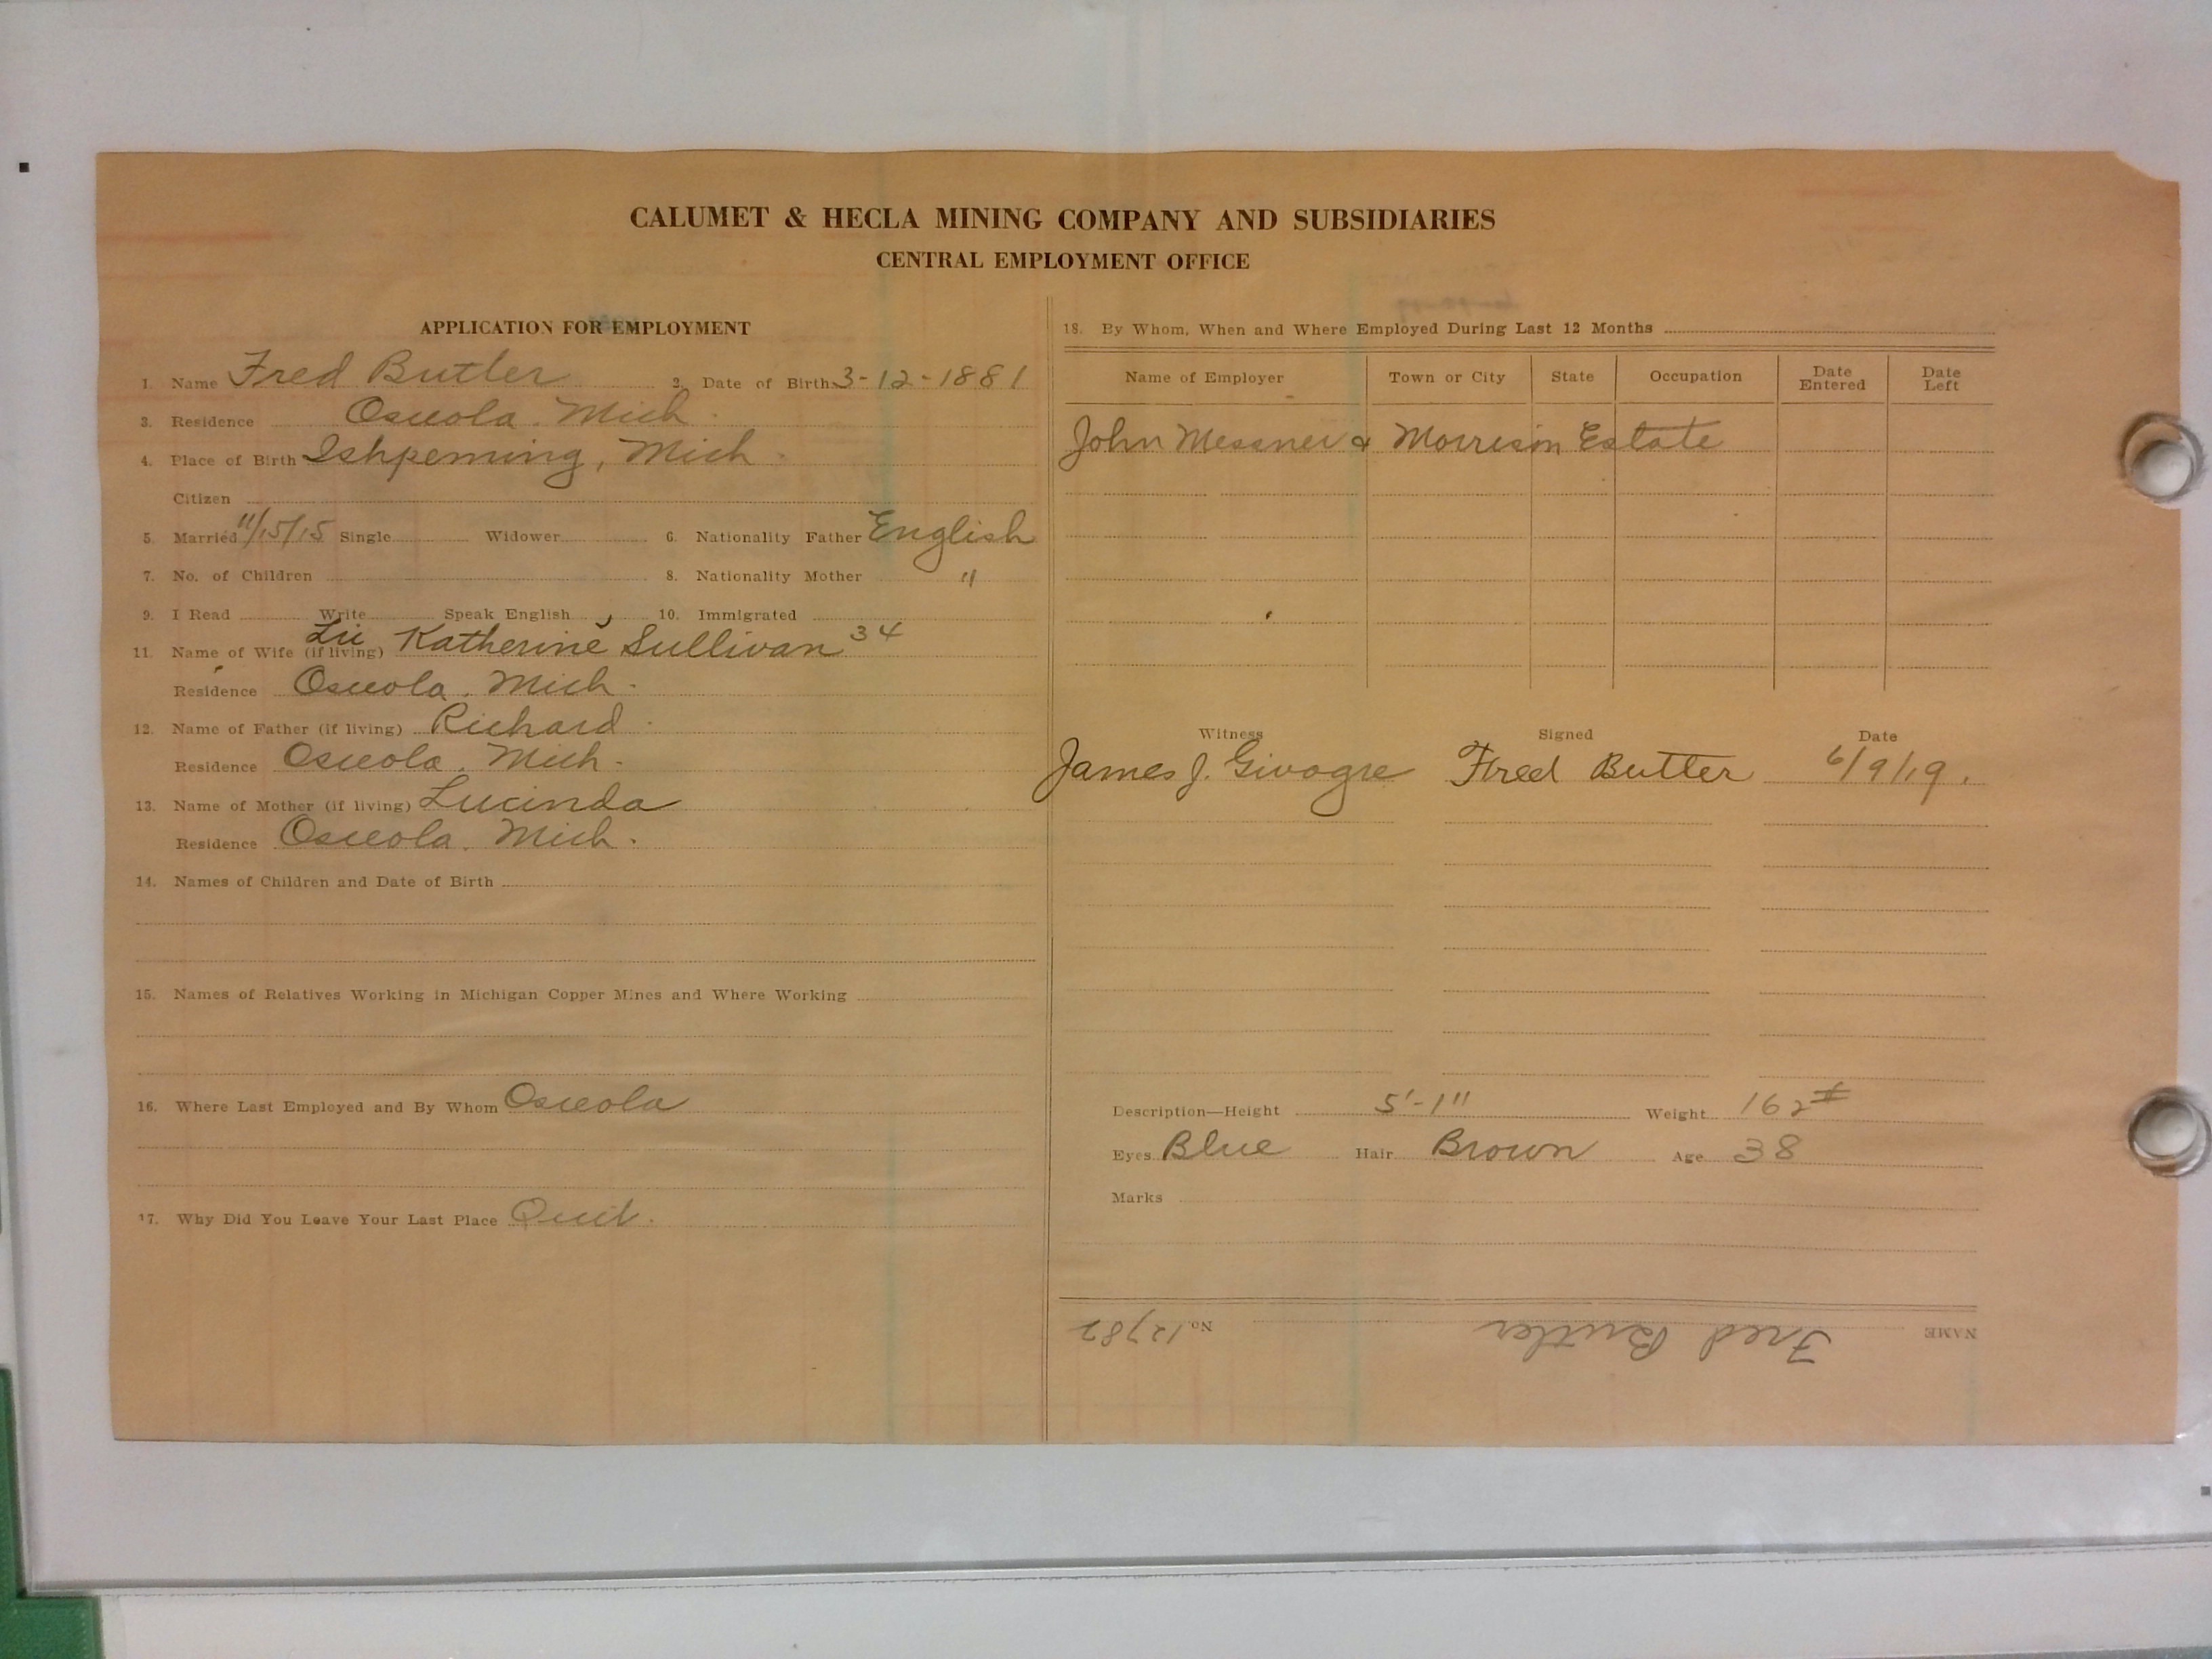 CALUMET & HECLA MINING COMPANY AND SUBSIDIARIES
CENTRAL EMPLOYMENT OFFICE
APPLICATION FOR EMPLOYMENT
1. Name Fred Butler 2. Date of Birth 3-12-1881
3. Residence Osceola. Mich.
4. Place of Birth Ishpeming, Mich.
Citizen
5. Married 11/15/15 Single Widower 6. Nationality Father English
7. No. of Children 8. Nationality Mother "
9. I Read Write Speak English 10. Immigrated
11. Name of Wife (if living) Katherine Sullivan 34
Residence Osceola. Mich.
12. Name of Father (if living) Richard
Residence Osceola. Mich.
13. Name of Mother (if living) Lucinda
Residence Osceola. Mich.
14. Names of Children and Date of Birth
15. Names of Relatives Working in Michigan Copper Mines and Where Working
16. Where Last Employed and By Whom Osceola
17. Why Did You Leave Your Last Place Quit.
18. By Whom, When and Where Employed During Last 12 Months
Name of Employer Town or City State Occupation Date Entered Date Left
John Messner & Morrison Estate
Witness Signed Date
James J. Fred Butler 6/9/19.
Description—Height 5'-1" Weight 162#
Eyes Blue Hair Brown Age 38
Marks
NAME Fred Butler No. 12782